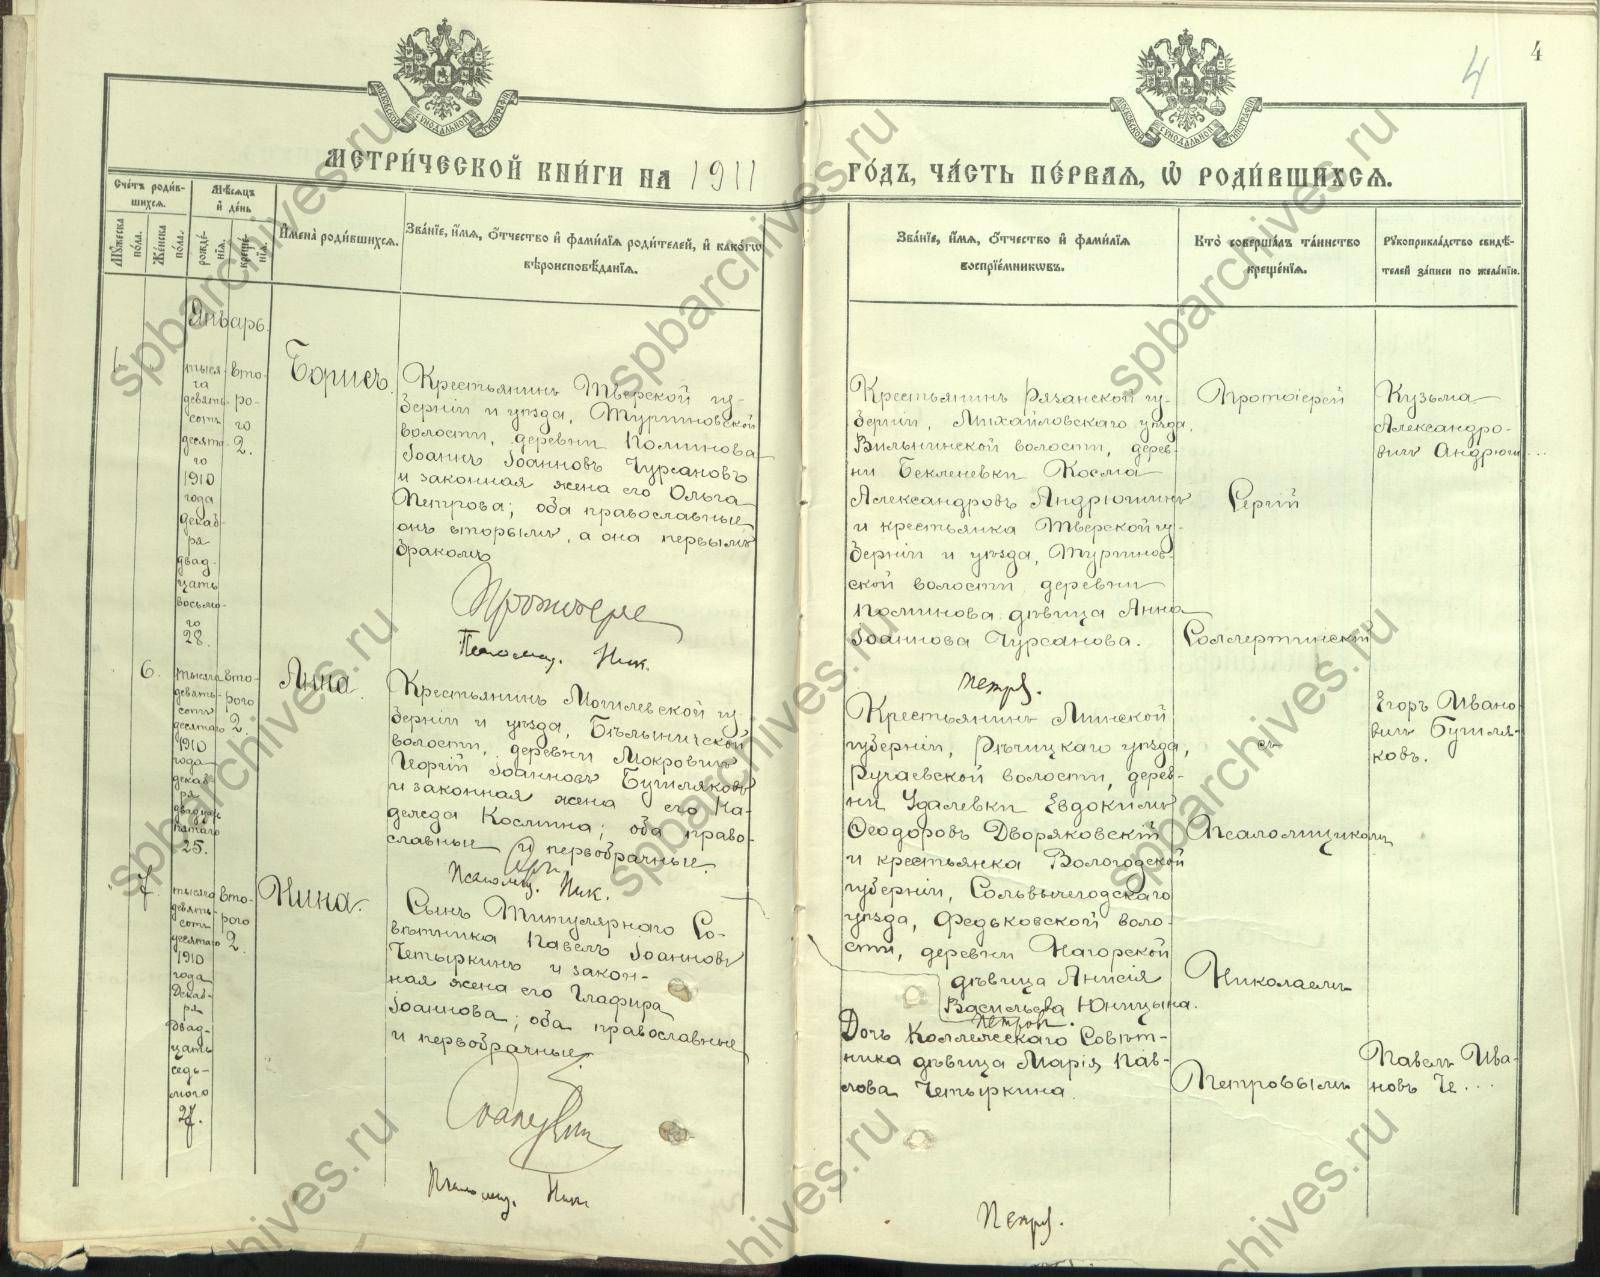 4
4
МОСКОВСКОЙ СѴНОДАЛЬНОЙ ТИПОГРАФІИ
МОСКОВСКОЙ СѴНОДАЛЬНОЙ ТИПОГРАФІИ
МЕТРИ́ЧЕСКОЙ КНИ́ГИ НА 1911
ГО́ДЪ, ЧА́СТЬ ПЕ́РВАЯ, Ѽ РОДИ́ВШИХСѦ.
Сче́тъ роди́в-
шихсѧ.
Мꙋ́жеска
по́ла.
Же́нска
по́ла.
Мѣ́сѧцъ
и҆ де́нь
рожде́-
нїѧ.
креще́-
нїѧ.
И҆мена̀ роди́вшихсѧ.
Зва́нїе, и҆́мѧ, ѻ҆́тчество и҆ фами́лїѧ роди́телей, и҆ како́гѡ
вѣроисповѣ́данїѧ.
Зва́нїе, и҆́мѧ, ѻ҆́тчество и҆ фами́лїѧ
воспрїе́мникѡвъ.
Кто̀ соверша́лъ та́инство
креще́нїѧ.
Рꙋкоприкла́дство свидѣ́-
телей за́писи по жела́нїю.
Январь.
тыся-
ча
девять-
сотъ
десята-
го
1910
года
декаб-
ря
двад-
цать
восьмо-
го
28.
вто-
ро-
го
2.
Борисъ.
Крестьянинъ Тверской гу-
берніи и уѣзда, Тургиновской
волости, деревни Поминова
Іоаннъ Іоанновъ Чурсановъ
и законная жена его Ольга
Петрова; оба православные,
онъ вторымъ, а она первымъ
бракомъ.
Псаломщ. Ник.
Крестьянинъ Рязанской гу-
берніи, Михайловскаго уѣзда,
волости, дерев-
ни Бекленевки Косма
Александровъ Андрюшинъ
и крестьянка Тверской гу-
берніи и уѣзда, Тургинов-
ской волости, деревни
Поминова дѣвица Анна
Іоаннова Чурсанова.
Петр.
Протоіерей
Сергій
Соллертинскій
Кузьма
Александро-
вичъ
6.
тысяча
девять-
сотъ
десятаго
1910
года
декаб
ря
двадцать
пятаго
25.
вто-
рого
2.
Анна.
Крестьянинъ Могилевской гу-
берніи и уѣзда, Бѣлыничской
волости, деревни Мокровичъ
Георгій Іоанновъ Бутиляковъ
и законная жена его На-
дежда Космина; оба право-
славные и первобрачные.
Псаломщ. Ник.
Крестьянинъ Минской
губерніи, Рѣчицкаго уѣзда,
Ручаевской волости, дерев-
ни Удалевки Евдокимъ
Ѳеодоровъ Дворяковскій
и крестьянка Вологодской
губерніи, Сольвычегодскаго
уѣзда, Федьковской воло-
сти, деревни Нагорской
дѣвица Анисія
Васильева Юницына.
съ
Псаломщикомъ
Николаемъ
Петровымъ
Егоръ Ивано
вичъ Бутиля-
ковъ.
7
тысяча
девять-
сотъ
десятаго
1910
года
Декаб-
ря
двад-
цать
седь-
мого
27.
вто-
рого
2.
Нина.
Сынъ Титулярнаго Со-
вѣтника Павелъ Іоанновъ
Четыркинъ и закон-
ная жена его Глафира
Іоаннова; оба православные
и первобрачные.
Псаломщ. Ник
Дочь Коллежскаго Совѣт-
ника дѣвица Марія Пав-
лова Четыркина.
Петр.
Павелъ Ива-
новъ Че...
spbarchives.ru
spbarchives.ru
spbarchives.ru
spbarchives.ru
spbarchives.ru
spbarchives.ru